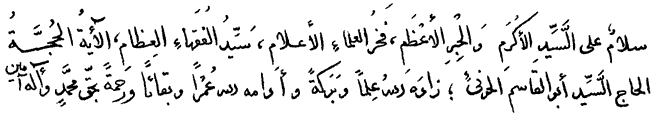 سلامٌ على السَّيِّدِ الأكرَمِ وَالحِبرِ الأعظَم، فَخرُ العلماءِ الأعلامِ، سَيِّدُ الفُقَهاءِ العِظامِ، الآيَةُ الحُجَّةُ
الحاج السَّيِّد أبو القاسم الخوئيّ؛ زاده الله عِلماً وَبَرَكةً وأدامه الله عُمْراً وبقاءًا وَرَحمةً بحقِّ محمَّدٍ وآله آمين